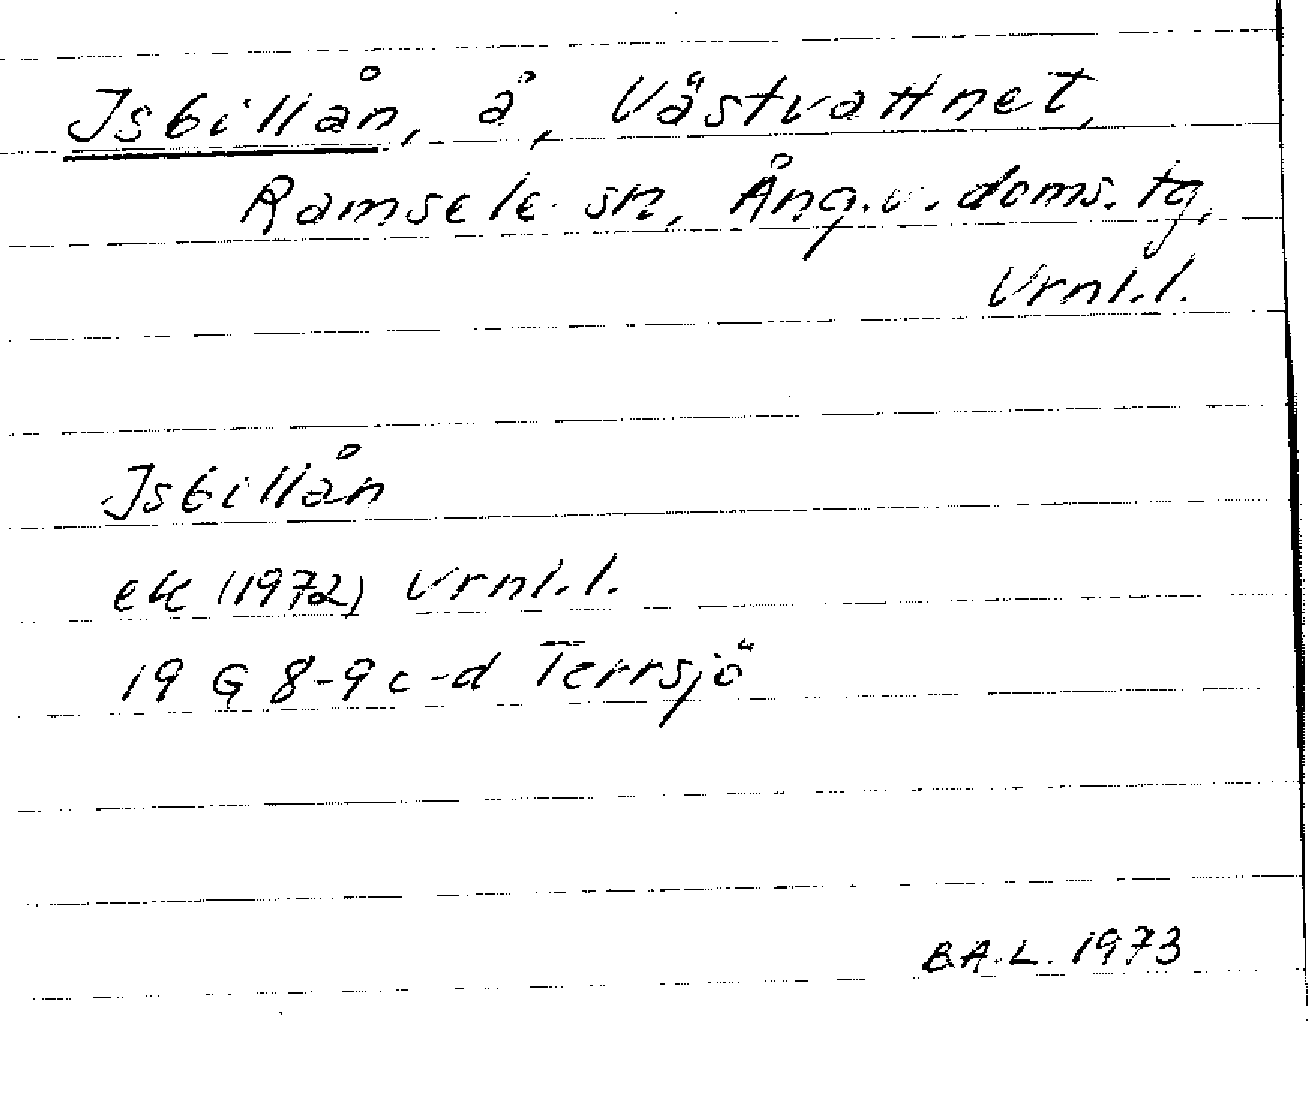 Isbillån, å, Västvattnet,
Ramsele sn, Ång.v.doms.tg,
Vrnl.l.
Isbillån
ek (1972) Vrnl.l.
19 G 8-9 c-d Terrsjö
B.A.L. 1973